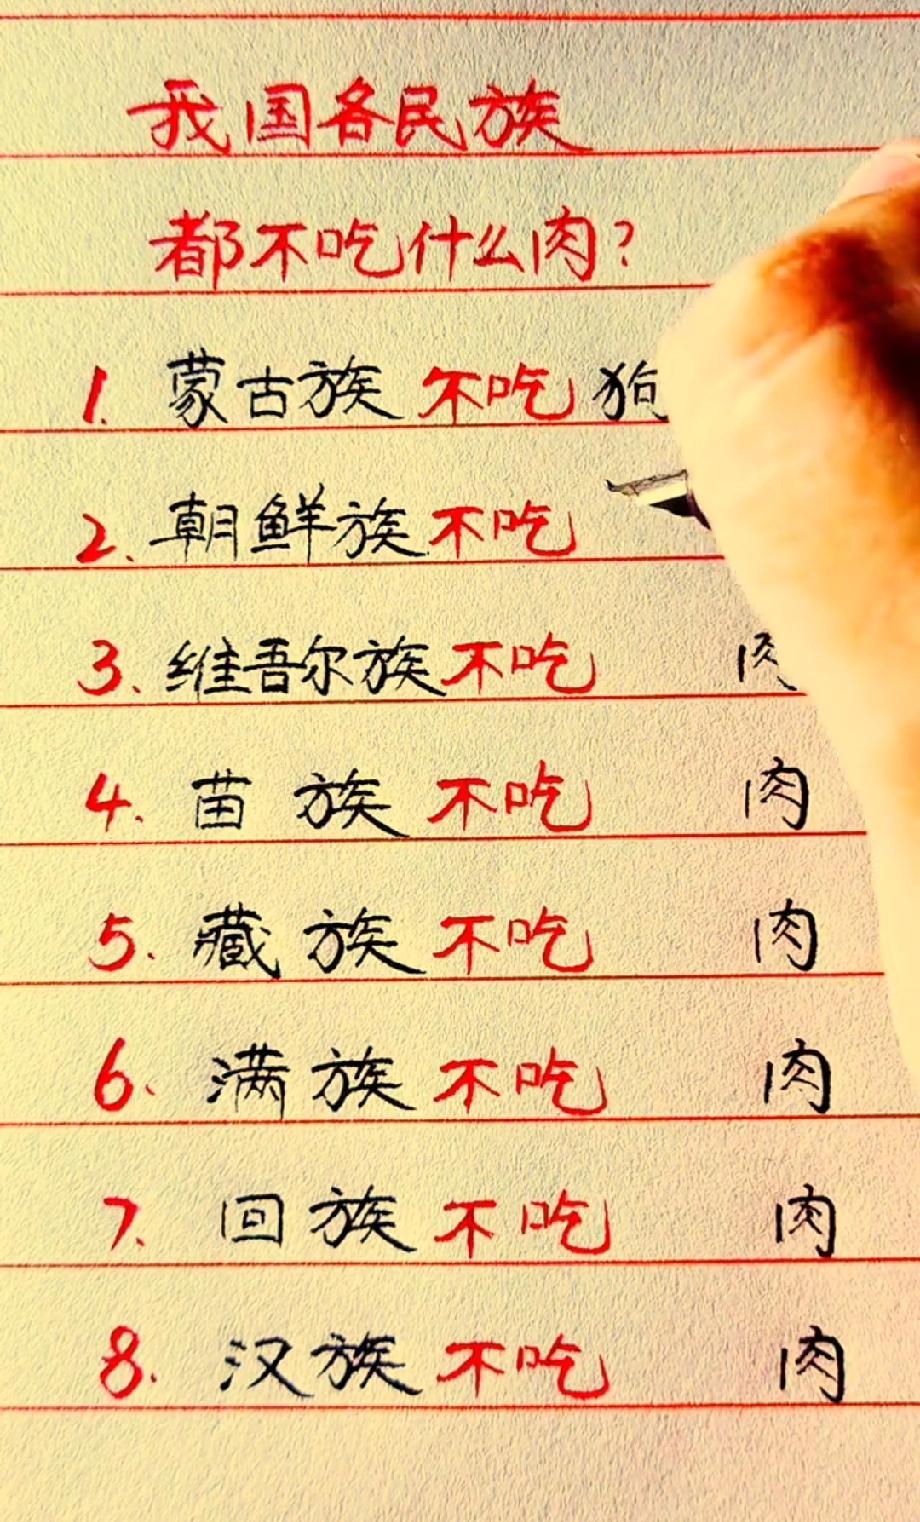 我国各民族
都不吃什么肉?
1. 蒙古族 不吃 狗
2. 朝鲜族 不吃
3. 维吾尔族 不吃 肉
4. 苗族 不吃 肉
5. 藏族 不吃 肉
6. 满族 不吃 肉
7. 回族 不吃 肉
8. 汉族 不吃 肉